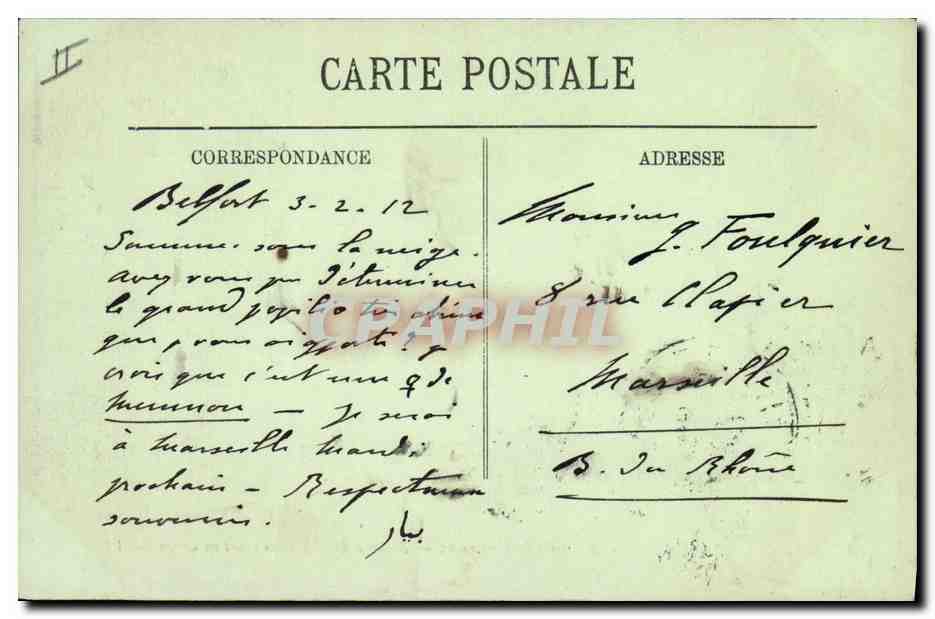 II
CARTE POSTALE
CORRESPONDANCE
ADRESSE
Belfort 3-2-12
Sommes sous la neige.
Avez vous pu déterminer
le grand papilio de Chine
que j vous ai apporté? J
crois que c'est une ♀ de
Memnon — Je serai
à Marseille Mardi
prochain — Respectueux
souvenirs.
بيار
Monsieur
J. Foulquier
8 rue Clapier
Marseille
B. du Rhône
CPAPHIL